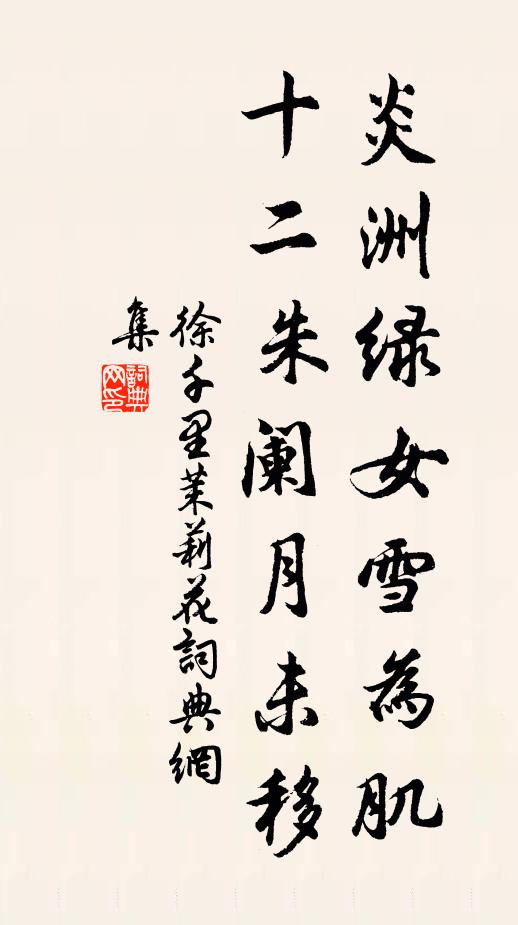 炎洲绿女雪為肌
十二朱阑月未移
徐千里茉莉花詞典網
集
詞典
网印